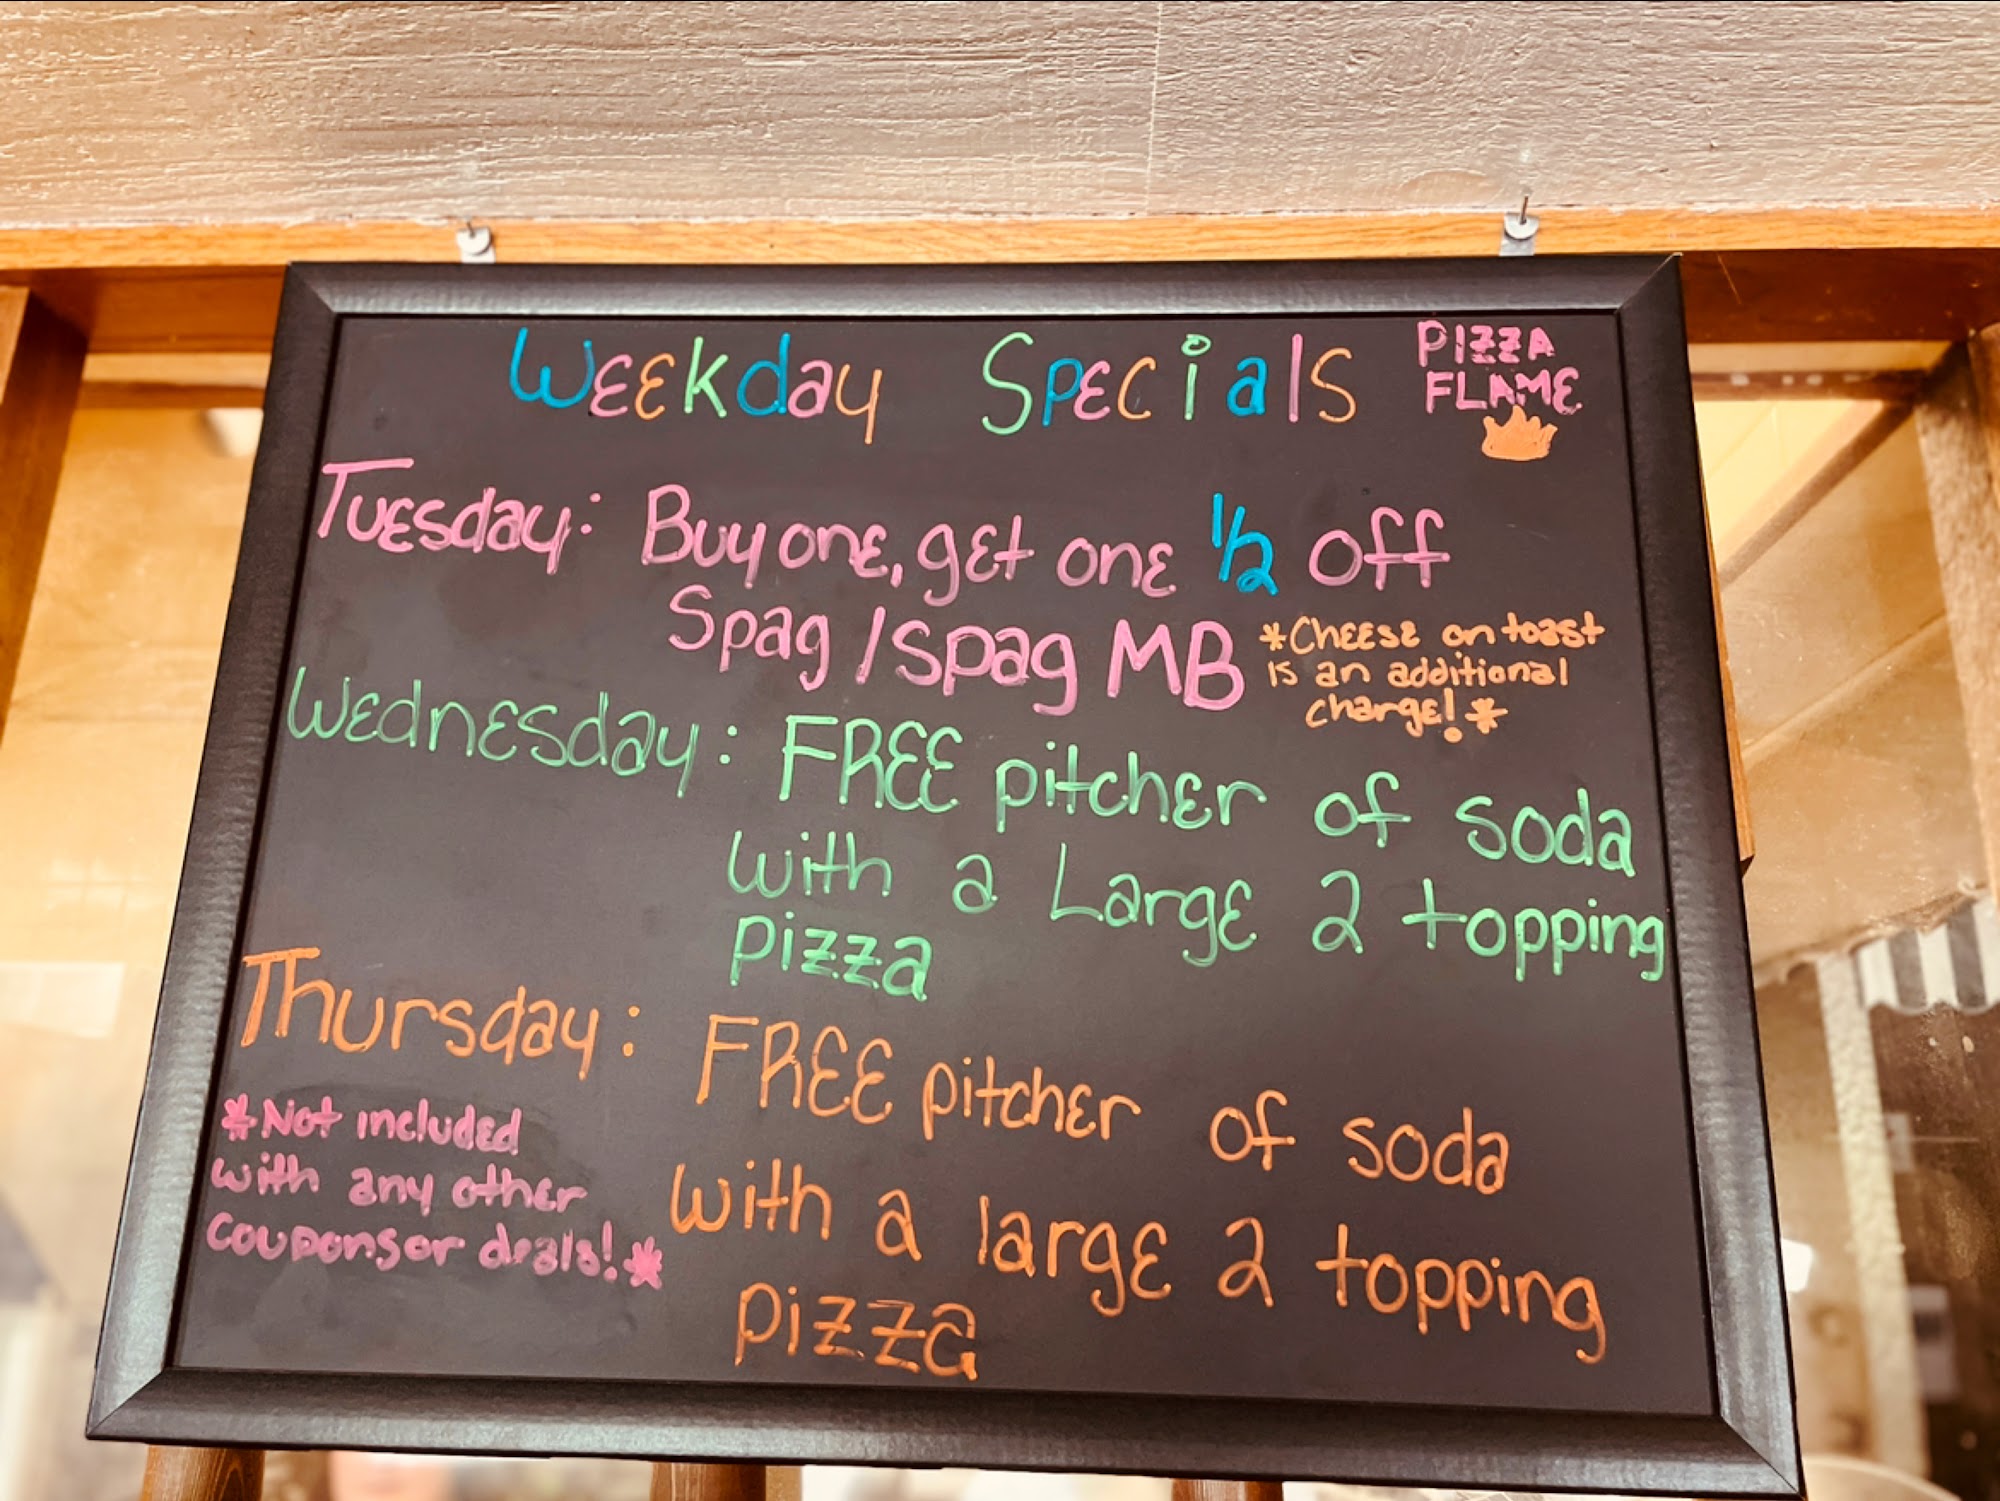 Weekday Specials
PIZZA
FLAME
Tuesday: Buy one, get one 1/2 off
Spag / Spag MB
*Cheese on toast
is an additional
charge!*
Wednesday: FREE pitcher of soda
with a Large 2 topping
pizza
Thursday: FREE pitcher of soda
with a large 2 topping
pizza
*Not included
with any other
coupons or deals!*